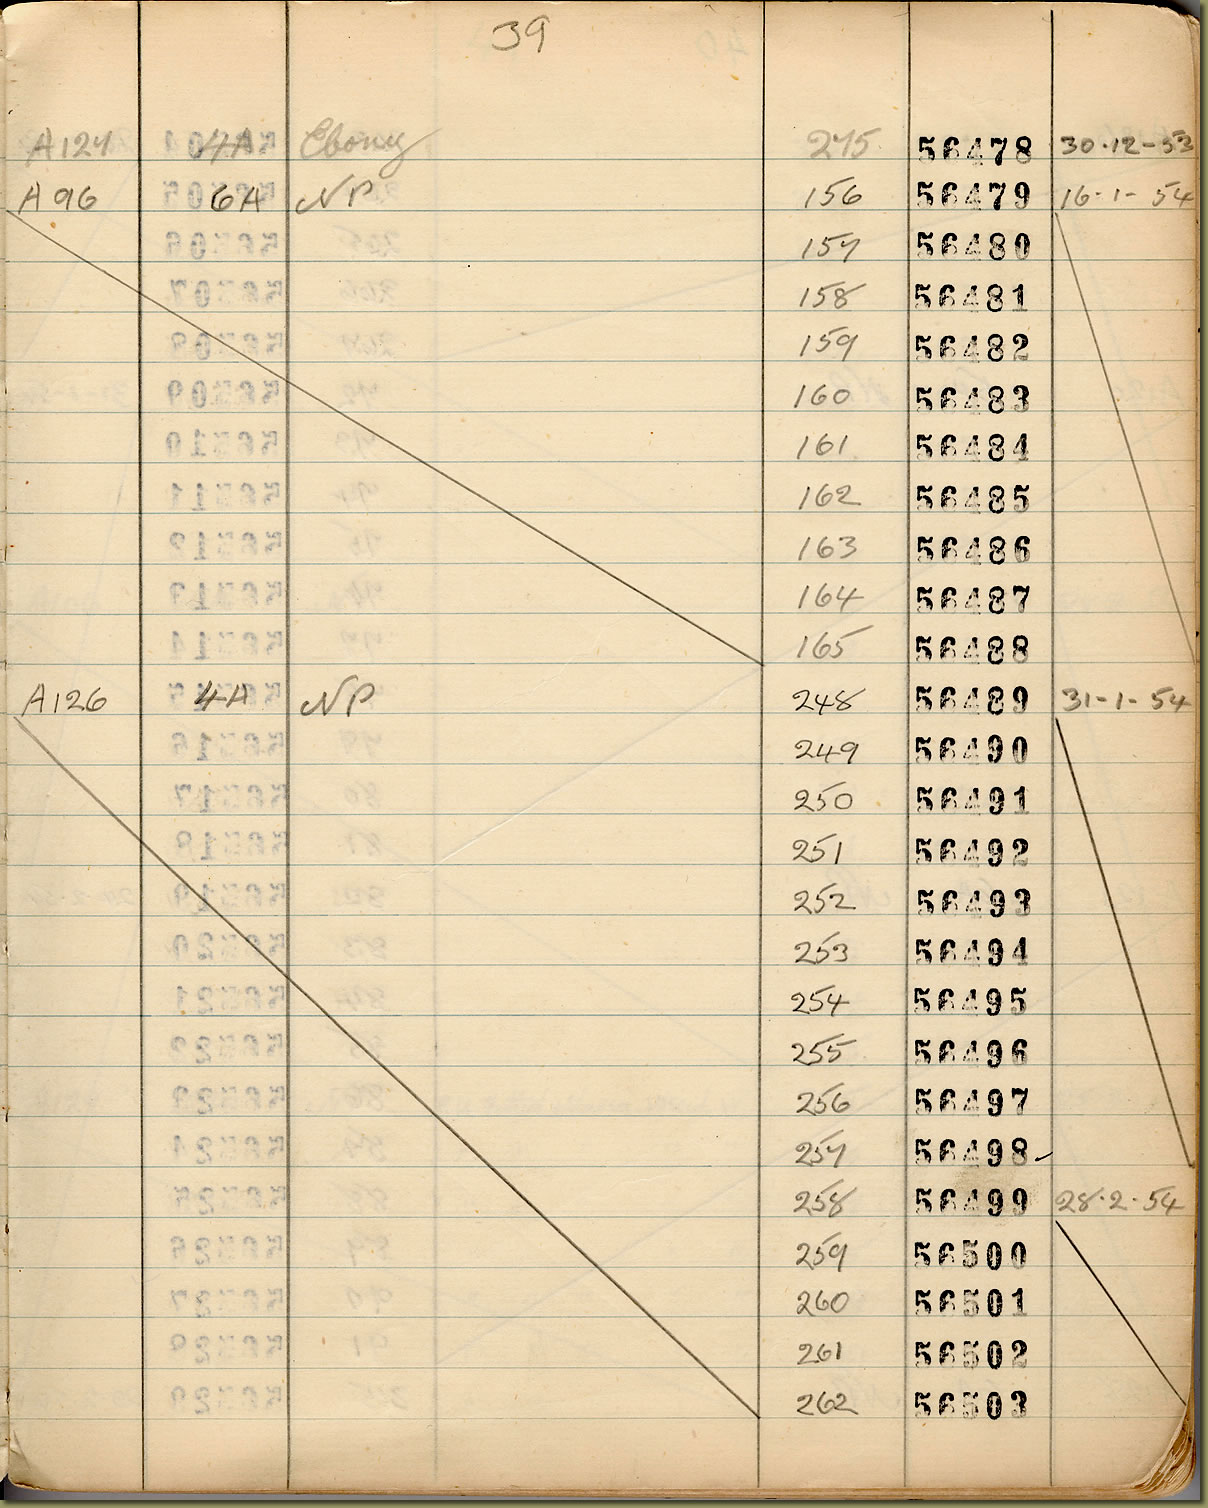 39
A127 4A Ebony 275 56478 30·12-53
A96 6A NP 156 56479 16·1-54
157 56480
158 56481
159 56482
160 56483
161 56484
162 56485
163 56486
164 56487
165 56488
A126 4A NP 248 56489 31-1-54
249 56490
250 56491
251 56492
252 56493
253 56494
254 56495
255 56496
256 56497
257 56498
258 56499 28·2·54
259 56500
260 56501
261 56502
262 56503